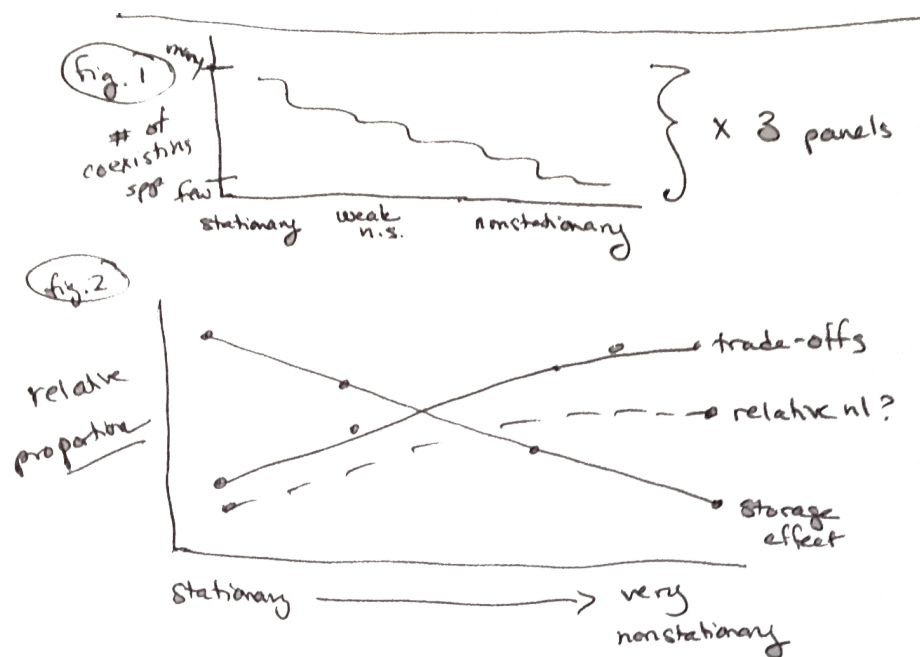 fig. 1
many
# of
coexisting
spp
few
stationary
weak
n.s.
nonstationary
x 3 panels
fig. 2
relative
proportion
trade-offs
relative nl?
storage
effect
stationary
very
nonstationary